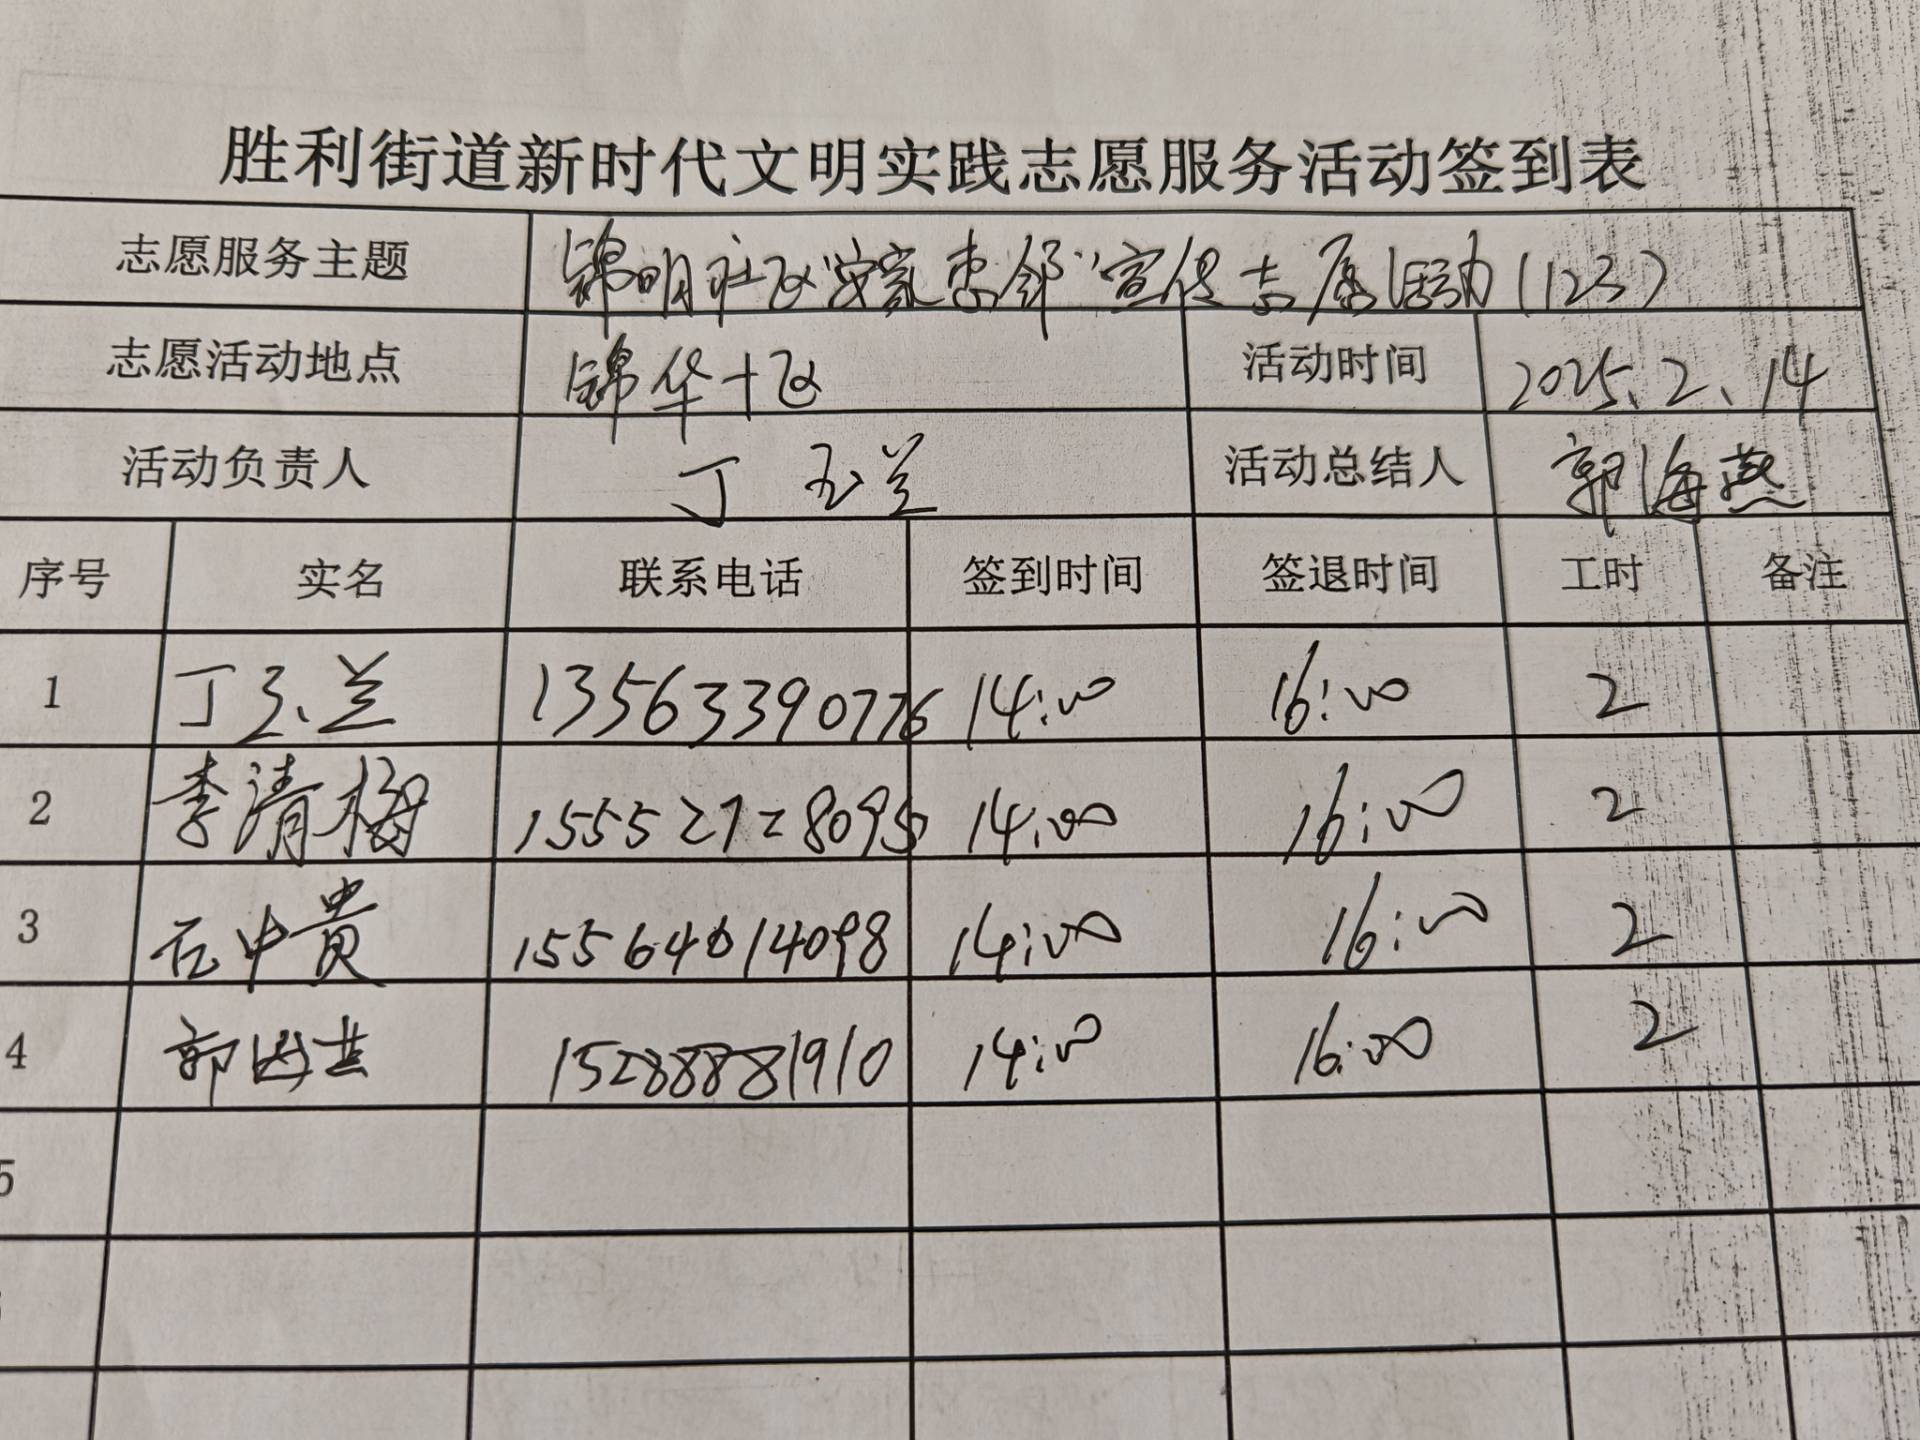 胜利街道新时代文明实践志愿服务活动签到表
志愿服务主题 锦明社区"安家惠邻"宣传志愿活动(123)
志愿活动地点 锦华十区 活动时间 2025.2.14
活动负责人 丁玉兰 活动总结人 郭海燕
序号 实名 联系电话 签到时间 签退时间 工时 备注
1 丁玉兰 13563390776 14:00 16:00 2
2 李清梅 15552728095 14:00 16:00 2
3 石中贵 15564014098 14:00 16:00 2
4 郭 15288881910 14:00 16:00 2
5